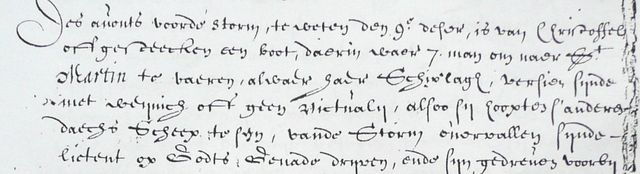 Des avonts voorde storm, te weten den 9e deser, is van Christoffel
off gesteecken een boot, daerin waer 7. man om naer St
Martin te vaeren, alwaer haer Schip lagh, versien sijnde
met weijnich off geen victualij, alsoo sij hoopten s'anderen
daechs Scheep te sijn, vande Storm overvallen sijnde
lietent op Godts Genade drijven, ende sijn gedreven voorbij